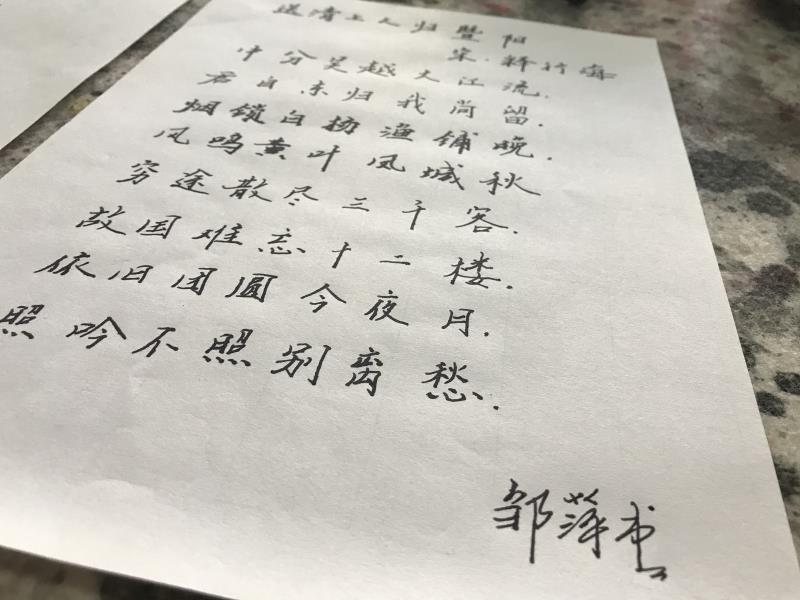 送清上人归暨阳
宋·释行海
中分吴越大江流.
君自东归我尚留.
烟锁白杨渔铺晚.
风鸣黄叶凤城秋
穷途散尽三千客.
故国难忘十二楼.
依旧团圆今夜月.
照吟不照别离愁.
邹萍书